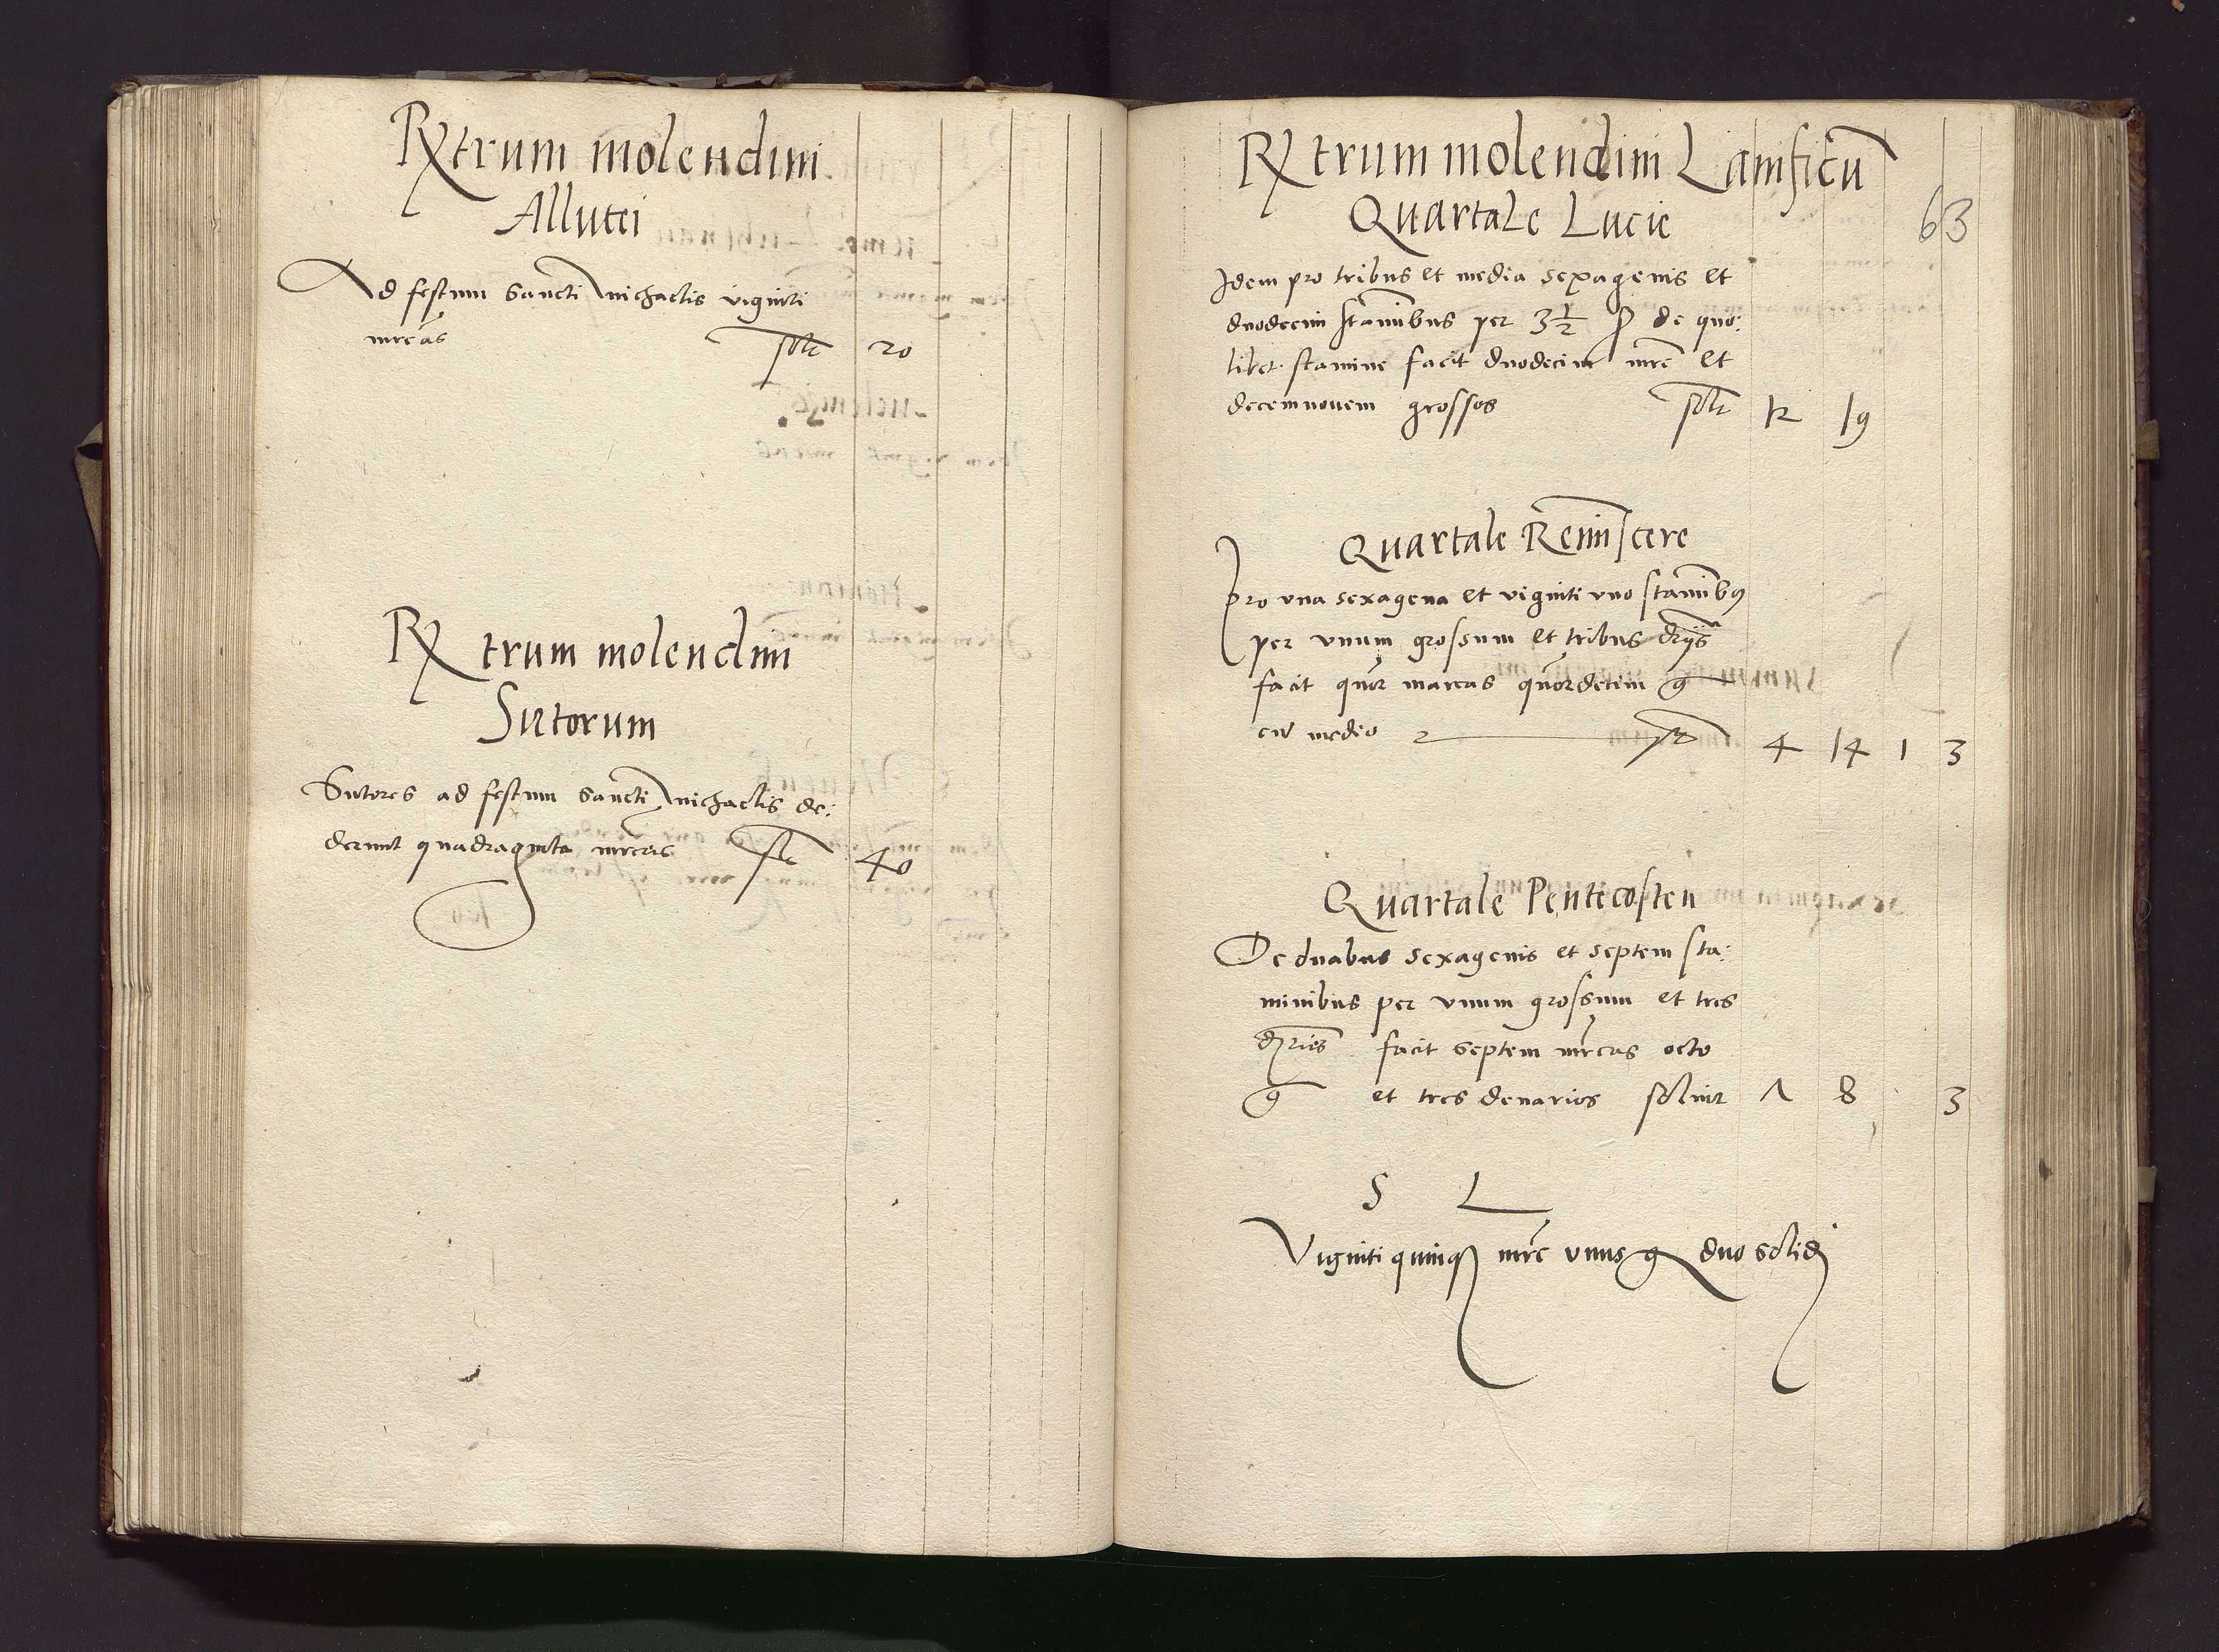 Rxtrum molendini
Allutei
Ad festum Sancti Michaelis viginti
mrcas solt 20
Rx trum molendini
Sutorum
Sutores ad festum Sancti Michaelis de:
derunt quadraginta mrcas solt 40
Rx trum molendini Lanificu
63
Quartale Lucie
Idem pro tribus et media sexagenis et
duodecim staminibus per 3 1/2 g de quo:
libet stamine facit duodecim mrc et
decemnouem grossos solt 12 19
Quartale Reminiscere
Pro vna sexagena et viginti vno staminibus
per vnum grossum et tribus driis
facit quor marcas quordecim g
cu medio 4 14 1 3
Quartale Pentecosten
De duabus sexagenis et septem sta:
minibus per vnum grossum et tres
dries facit septem mrcas octo
g et tres denarios soluit 7 8 3
S L
Viginti quinq mrc vnus g duo solid